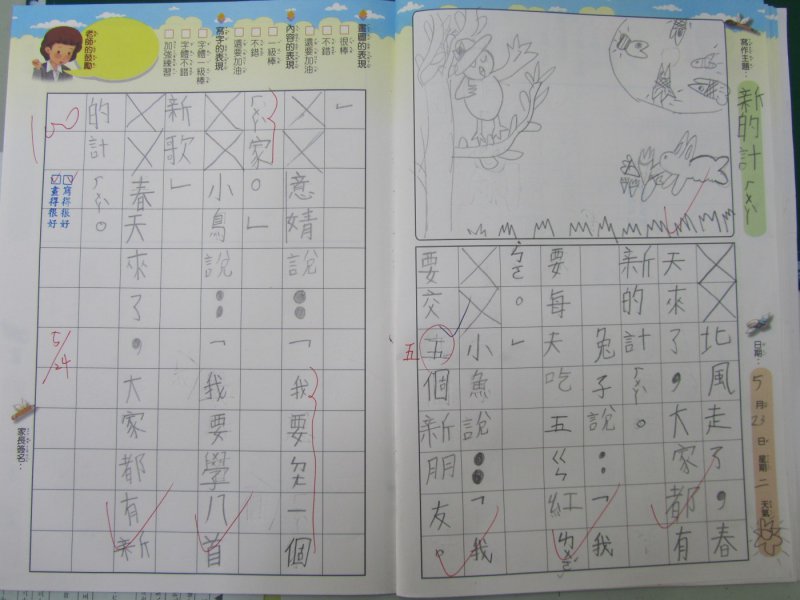 寫作主題：
新的計ㄏㄨㄚˋ
日期：5月23日 星期二 天氣
北風走了，春
天來了，大家都有
新的計ㄏㄨㄚˋ。
兔子說：「我
要每天吃五ㄍㄣ紅ㄌㄨㄛˊ
ㄅㄛ。」
小魚說：「我
要交五個新朋友。
五
」
意婧說：「我要ㄉㄤ一個
ㄏㄨㄚˋ家。」
小鳥說：「我要學八首
新歌」
春天來了，大家都有新
的計ㄏㄨㄚˋ。
畫圖的表現
很棒
不錯
還要加油
內容的表現
一級棒
不錯
還要加油
寫字的表現
字體一級棒
字體不錯
加強練習
老師的鼓勵
100
寫得很好
畫得很好
5/24
家長簽名：